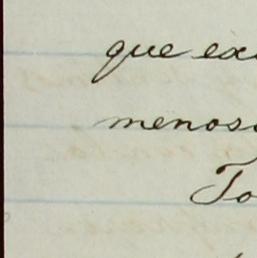 que ex
menos
To